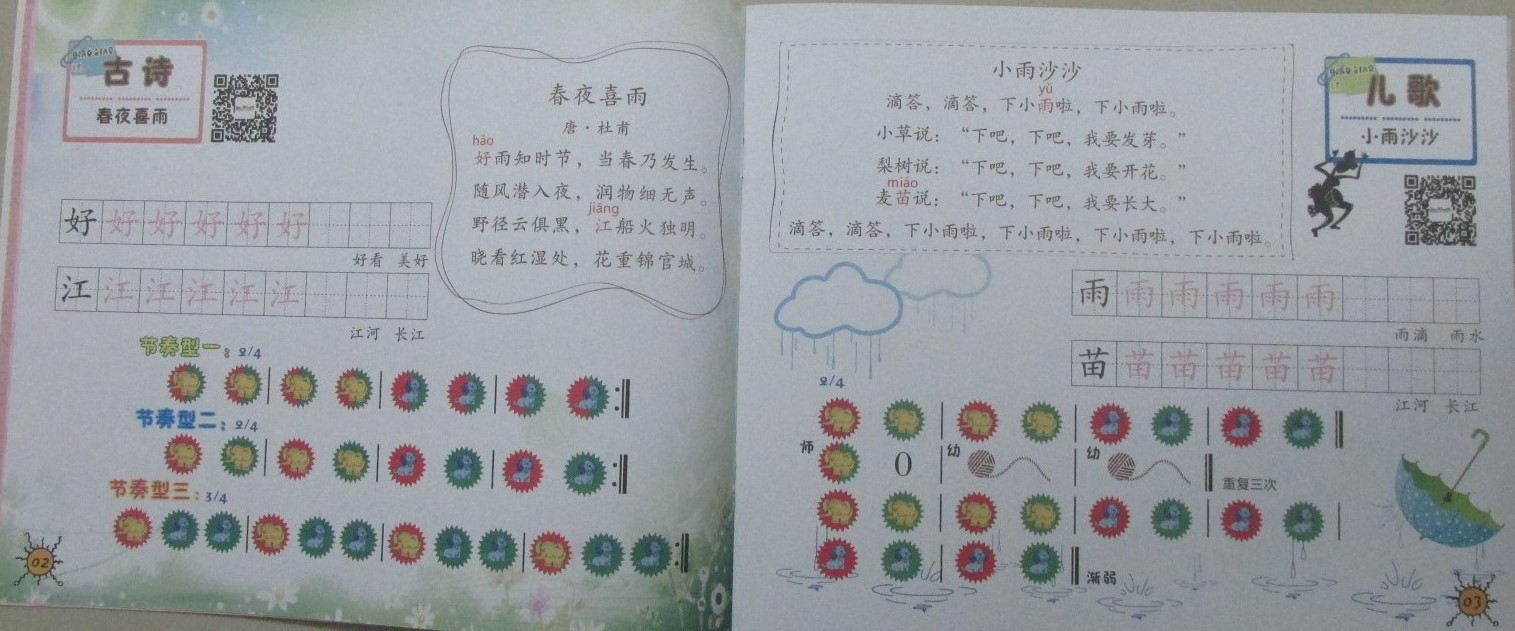 QIAO QIAO
古诗
春夜喜雨
春夜喜雨
唐·杜甫
hǎo
好雨知时节，当春乃发生。
随风潜入夜，润物细无声。
jiāng
野径云俱黑，江船火独明。
晓看红湿处，花重锦官城。
好 好 好 好 好 好
好看 美好
江 江 江 江 江 江
江河 长江
节奏型一：2/4
节奏型二：2/4
节奏型三：3/4
02
小雨沙沙
yǔ
滴答，滴答，下小雨啦，下小雨啦。
小草说：“下吧，下吧，我要发芽。”
梨树说：“下吧，下吧，我要开花。”
miáo
麦苗说：“下吧，下吧，我要长大。”
滴答，滴答，下小雨啦，下小雨啦，下小雨啦，下小雨啦。
QIAO QIAO
儿歌
小雨沙沙
雨 雨 雨 雨 雨 雨
雨滴 雨水
苗 苗 苗 苗 苗 苗
江河 长江
2/4
师 0 幼 幼 重复三次
渐弱
03